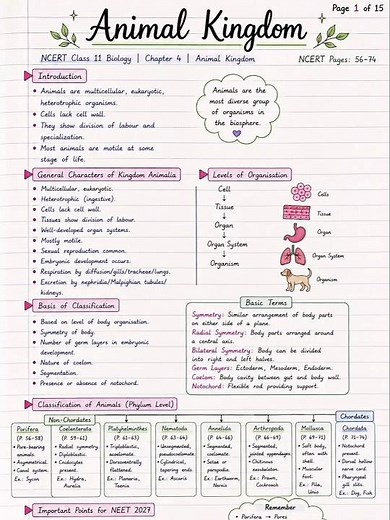 Page 1 of 15
Animal Kingdom
NCERT Class 11 Biology | Chapter 4 | Animal Kingdom
NCERT Pages: 56-74
Introduction
• Animals are multicellular, eukaryotic,
heterotrophic organisms.
• Cells lack cell wall.
• They show division of labour and
specialization.
• Most animals are motile at some
stage of life.
Animals are the
most diverse group
of organisms in
the biosphere.
General Characters of Kingdom Animalia
• Multicellular, eukaryotic.
• Heterotrophic (ingestive).
• Cells lack cell wall.
• Tissues show division of labour.
• Well-developed organ systems.
• Mostly motile.
• Sexual reproduction common.
• Embryonic development occurs.
• Respiration by diffusion/gills/tracheae/lungs.
• Excretion by nephridia/Malpighian tubules/
kidneys.
Levels of Organisation
Cell
↓
Tissue
↓
Organ
↓
Organ System
↓
Organism
Cells
Tissue
Organ
Organ System
Organism
Basis of Classification
• Based on level of body organisation.
• Symmetry of body.
• Number of germ layers in embryonic
development.
• Nature of coelom.
• Segmentation.
• Presence or absence of notochord.
Basic Terms
Symmetry: Similar arrangement of body parts
on either side of a plane.
Radial Symmetry: Body parts arranged around
a central axis.
Bilateral Symmetry: Body can be divided
into right and left halves.
Germ Layers: Ectoderm, Mesoderm, Endoderm.
Coelom: Body cavity between gut and body wall.
Notochord: Flexible rod providing support.
Classification of Animals (Phylum Level)
Non-Chordates
Chordates
Porifera
(P. 56-58)
• Pore-bearing
animals.
• Asymmetrical.
• Canal system.
Ex.: Sycon
Coelenterata
(P. 59-61)
• Radial symmetry.
• Diploblastic.
• Cnidocytes
present.
Ex.: Hydra,
Aurelia
Platyhelminthes
(P. 61-63)
• Triploblastic,
acoelomate.
• Dorsoventrally
flattened.
Ex.: Planaria,
Taenia
Nematoda
(P. 63-64)
• Unsegmented,
pseudocoelomate.
• Cylindrical,
tapering ends.
Ex.: Ascaris
Annelida
(P. 64-66)
• Segmented,
coelomate.
• Setae or
parapodia.
Ex.: Earthworm,
Nereis
Arthropoda
(P. 66-69)
• Segmented,
jointed appendages.
• Chitinous
exoskeleton.
Ex.: Prawn,
Cockroach
Mollusca
(P. 69-71)
• Soft body,
often with
shell.
• Muscular
foot.
Ex.: Pila,
Unio
Chordata
(P. 71-74)
• Notochord
present.
• Dorsal hollow
nerve cord.
• Pharyngeal
gill slits.
Ex.: Dog, Fish
Important Points for NEET 2027
Remember
• Porifera → Pores